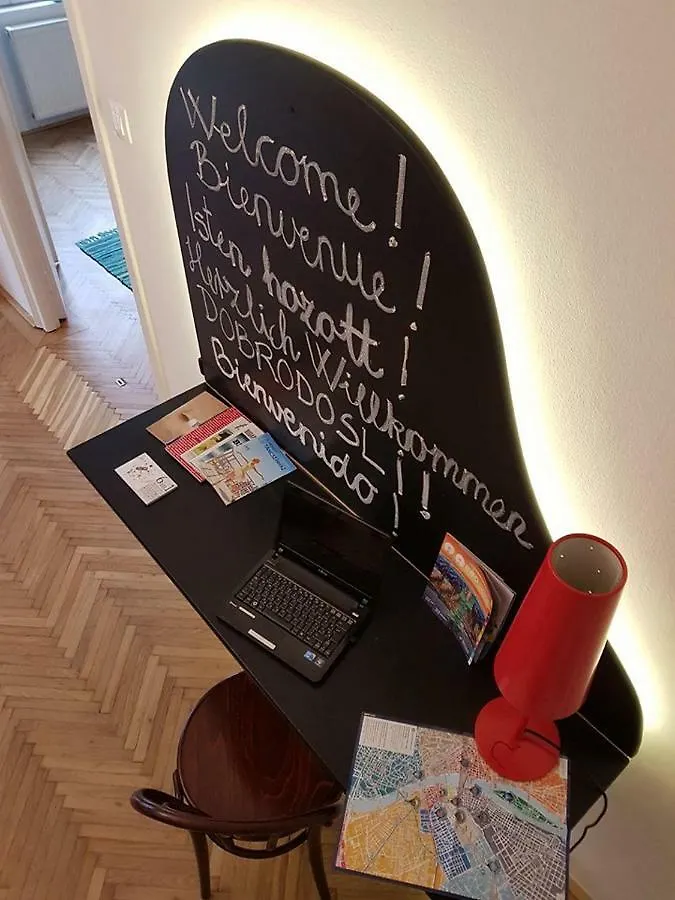 Welcome!
Bienvenue!
Isten hozott!
Herzlich Willkommen!
DOBRODOSL!
Bienvenido!
6